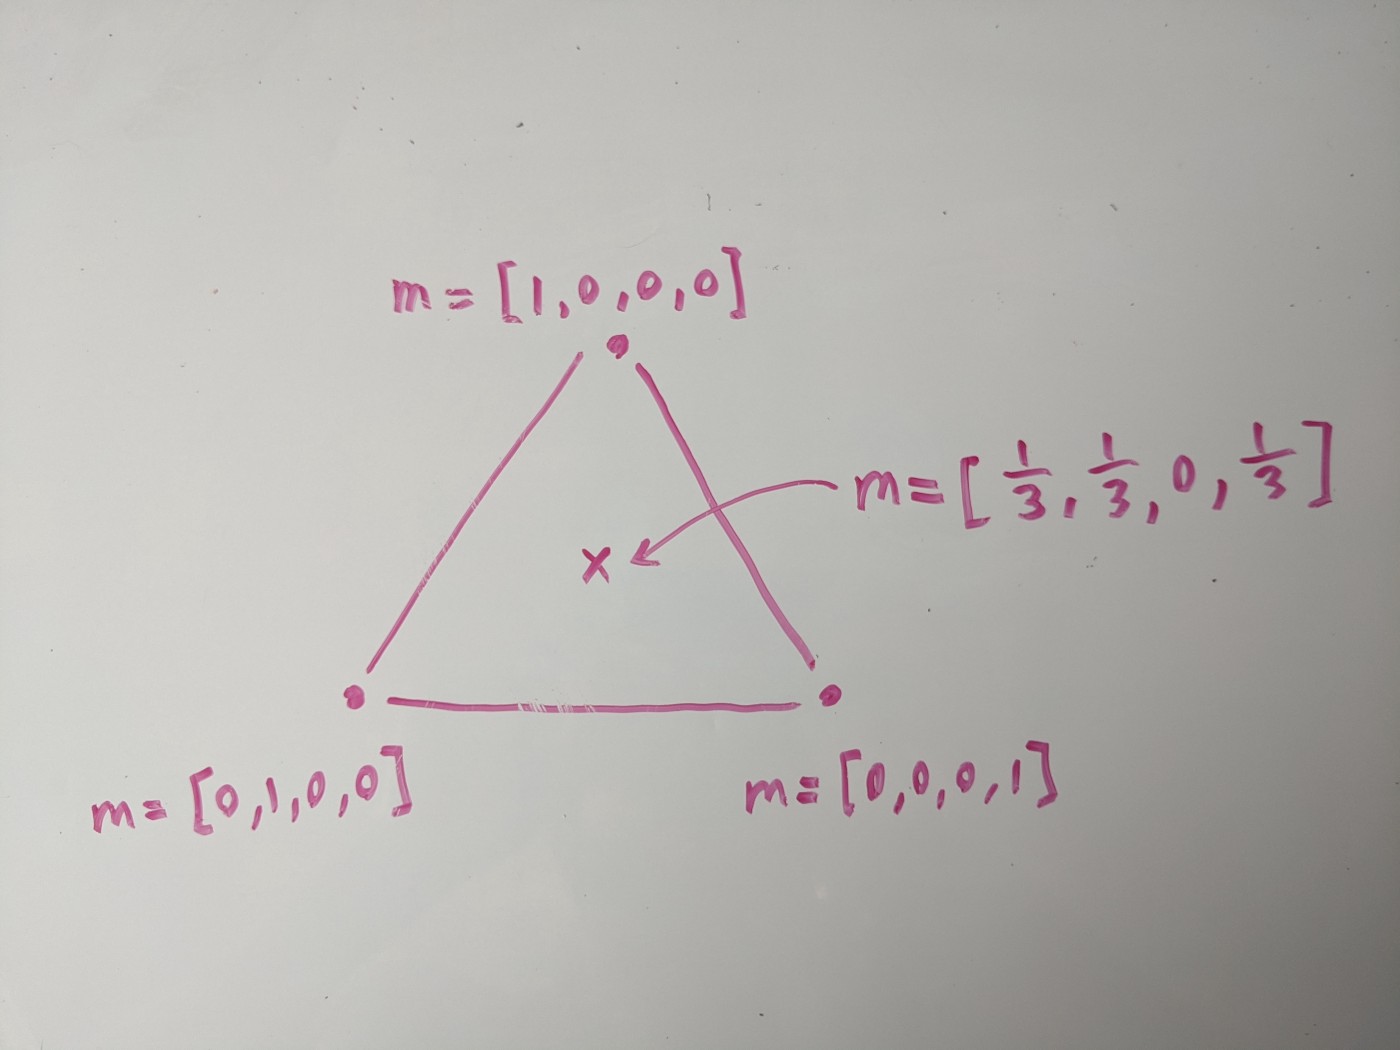 m = [1, 0, 0, 0]
m = [1/3, 1/3, 0, 1/3]
x
m = [0, 1, 0, 0]
m = [0, 0, 0, 1]